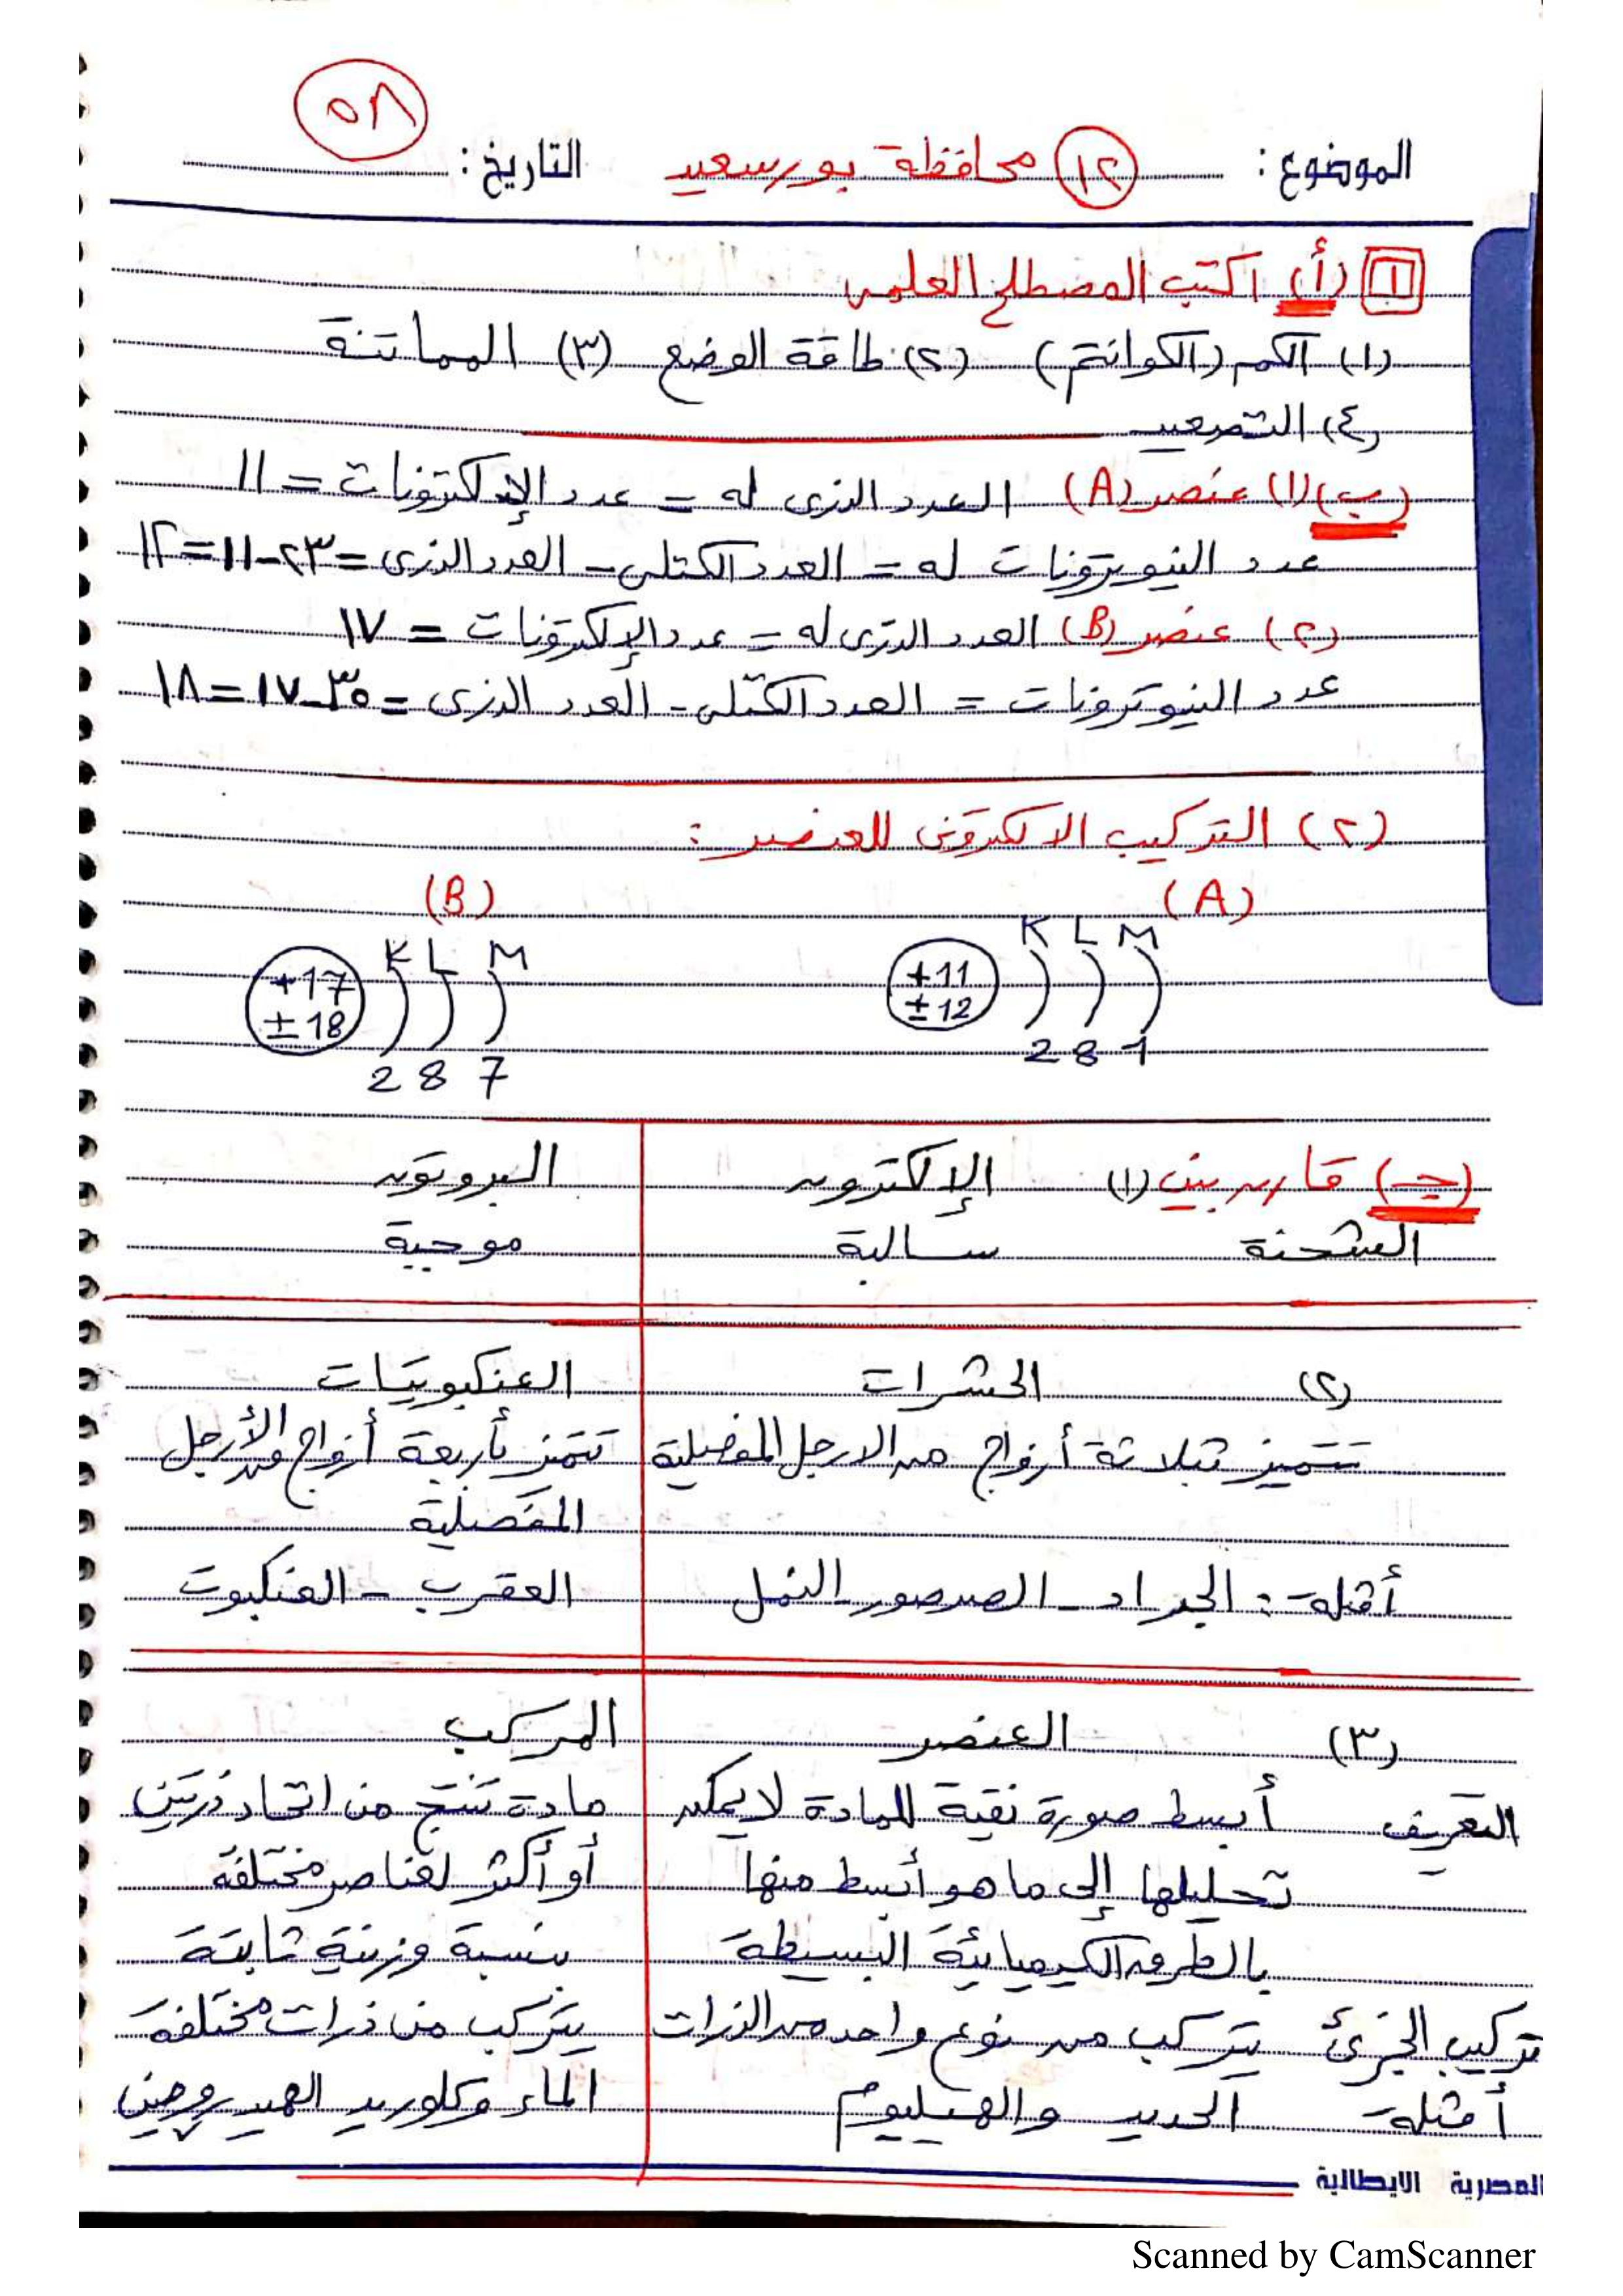 ٥٨
الموضوع: (١٢) محافظة بورسعيد التاريخ:
١ (أ) اكتب المصطلح العلمى
(١) الكم (الكوانتم) (٢) طاقة الوضع (٣) المماتنة
(٤) التصعيد
(ب) (١) عنصر (A) العدد الذرى له = عدد الإلكترونات = ١١
عدد النيوترونات له = العدد الكتلى - العدد الذرى = ٢٣-١١=١٢
(٢) عنصر (B) العدد الذرى له = عدد الإلكترونات = ١٧
عدد النيوترونات = العدد الكتلى - العدد الذرى = ٣٥-١٧=١٨
(٢) التركيب الالكترونى للعنصر:
(A) (B)
K L M K L M
+11 +17
±12 ±18
2 8 1 2 8 7
(جـ) قارن بين (١) الإلكترون البروتون
الشحنة سالبة موجبة
(٢) الحشرات العنكبوتيات
تتميز بثلاثة أزواج من الارجل المفصلية تتميز بأربعة أزواج من الأرجل
المفصلية
أمثلة: الجراد - الصرصور - النمل العقرب - العنكبوت
(٣) العنصر المركب
التعريف أبسط صورة نقية للمادة لا يمكن مادة تنتج من اتحاد ذرتين
تحليلها إلى ما هو أبسط منها أو أكثر لعناصر مختلفة
بالطرق الكيميائية البسيطة بنسبة وزنية ثابتة
تركيب الجزئ يتركب من نوع واحد من الذرات يتركب من ذرات مختلفة
أمثلة الحديد والهيليوم الماء وكلوريد الهيدروجين
المصرية الايطالية
Scanned by CamScanner